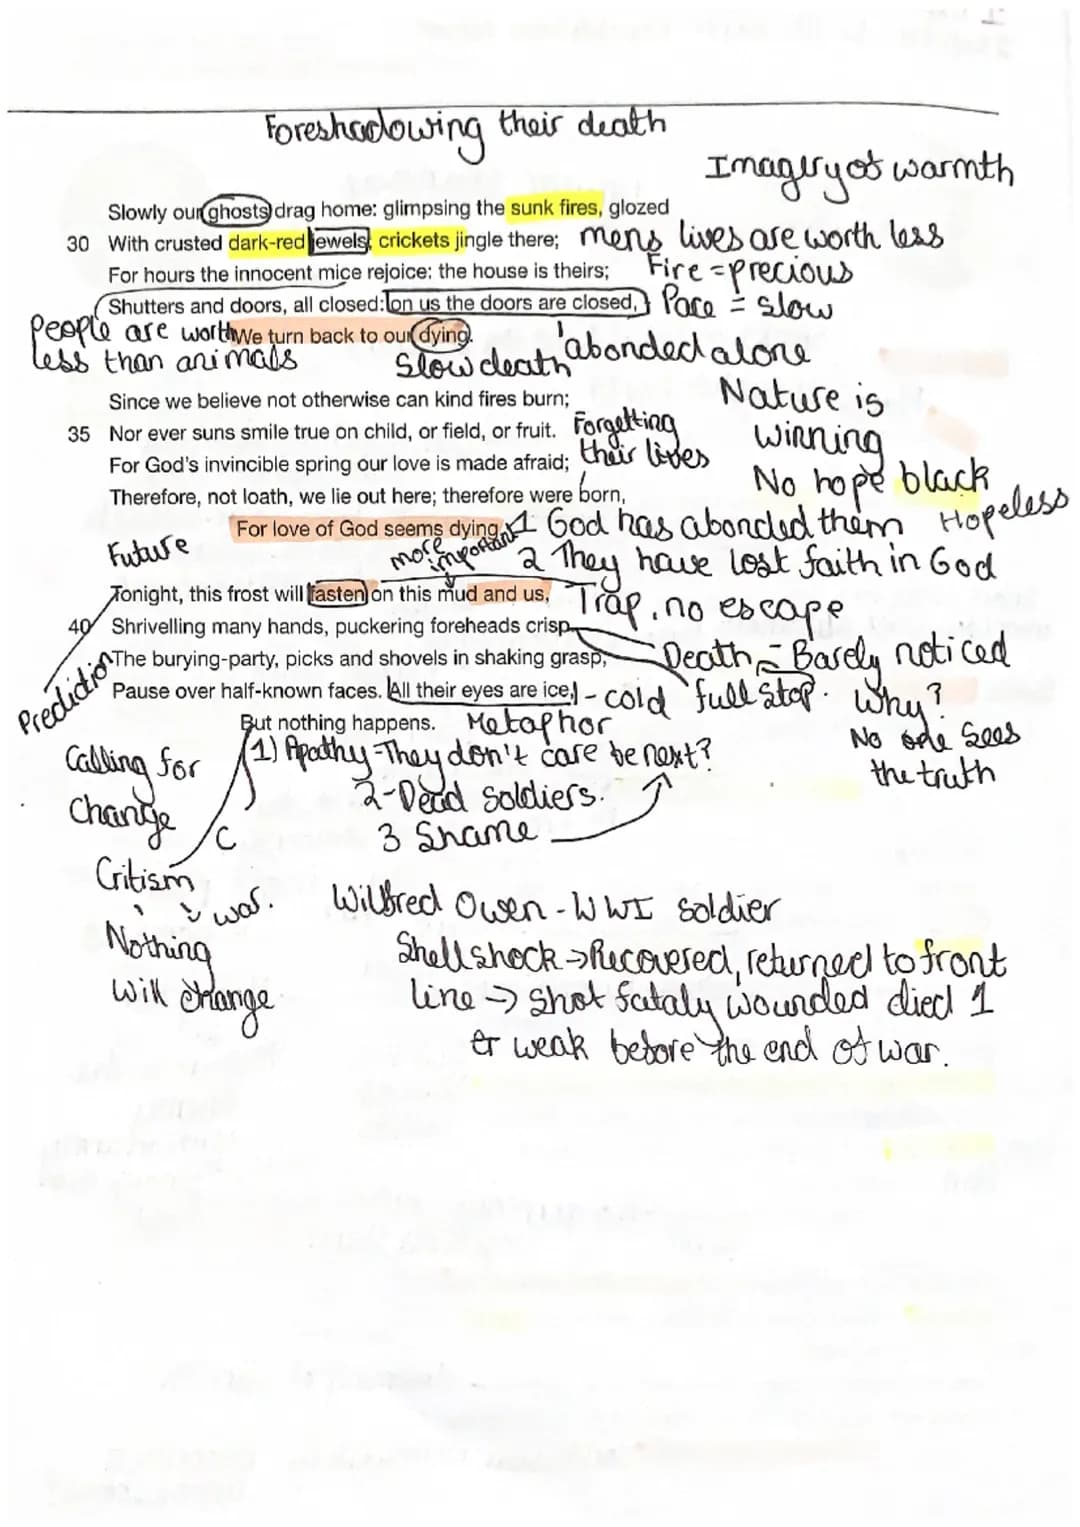 Foreshadowing their death
Imagery of warmth
Slowly our ghosts drag home: glimpsing the sunk fires, glozed
30 With crusted dark-red jewels; crickets jingle there; mens lives are worth less
For hours the innocent mice rejoice: the house is theirs; Fire = precious
Shutters and doors, all closed: on us the doors are closed, Pace = slow
People are worth We turn back to our dying.
less than animals Slow death abonded alone
Since we believe not otherwise can kind fires burn; Nature is
35 Nor ever suns smile true on child, or field, or fruit. Forgetting winning
For God's invincible spring our love is made afraid; their lives
No hope black
Therefore, not loath, we lie out here; therefore were born, Hopeless
For love of God seems dying. 1 God has abonded them
Future more important 2 They have lost faith in God
Tonight, this frost will fasten on this mud and us, Trap, no escape
40 Shrivelling many hands, puckering foreheads crisp.
The burying-party, picks and shovels in shaking grasp, Death = Barely noticed
Prediction
Pause over half-known faces. All their eyes are ice, - cold full stop. Why?
But nothing happens. Metaphor No one sees
the truth
Calling for
Change
1) Apathy - They don't care be next?
2 - Dead soldiers.
3 Shame
C
Critism
war.
Nothing
Will change
Wilfred Owen - WWI soldier
Shell shock → Recovered, returned to front
line → shot fataly wounded died 1
weak before the end of war.